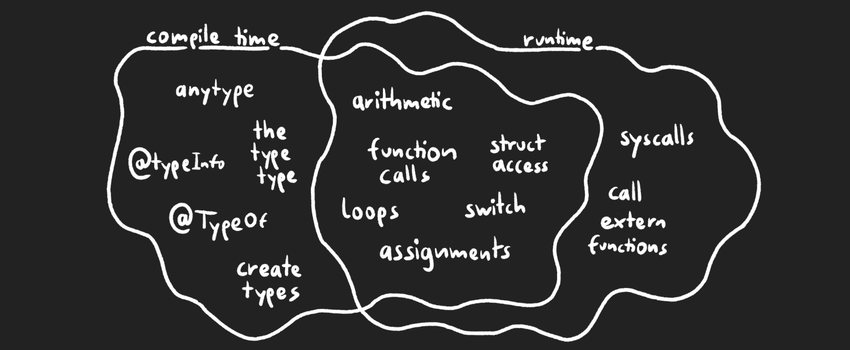 compile time
runtime
anytype
@typeInfo
the
type
type
@TypeOf
create
types
arithmetic
function
calls
struct
access
loops
switch
assignments
syscalls
call
extern
functions